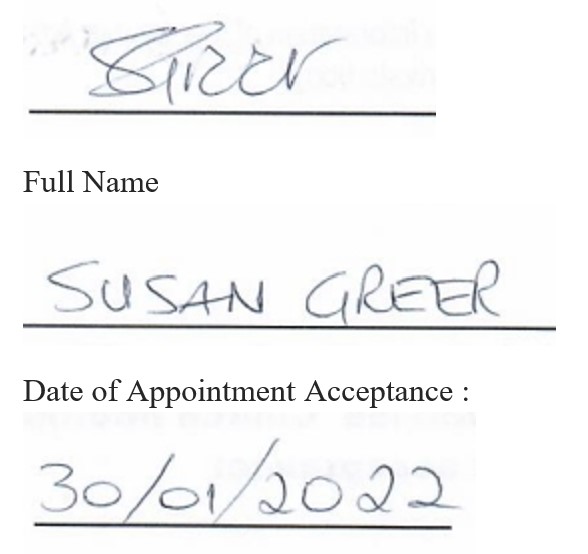 Full Name
SUSAN GREER
Date of Appointment Acceptance :
30/01/2022